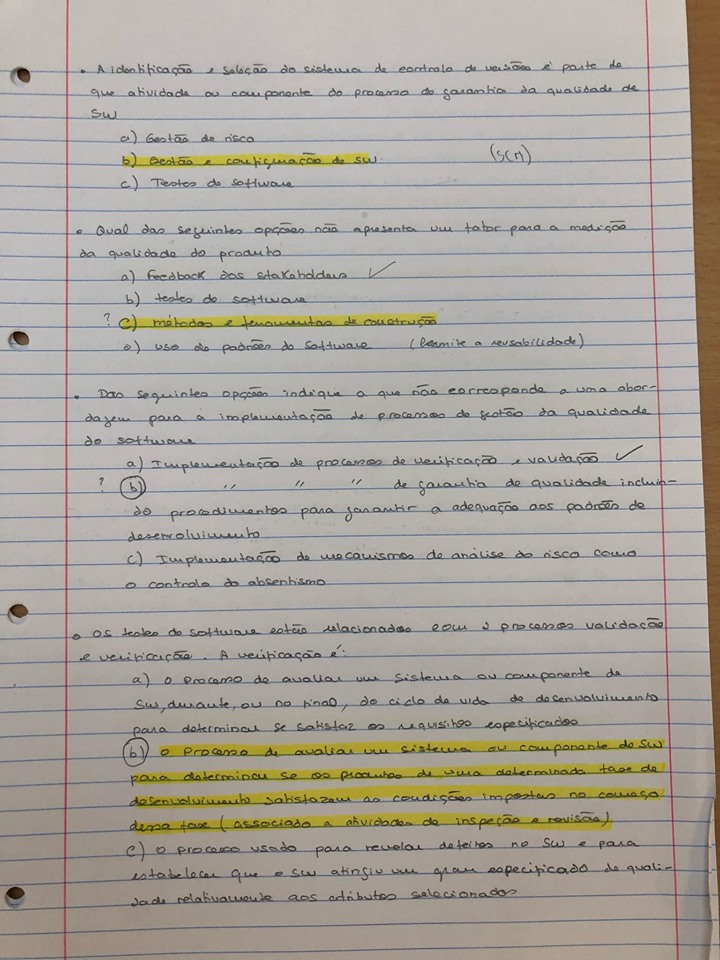 • A identificação e seleção do sistema de controlo de versões é parte de
que atividade ou componente do processo de garantia da qualidade de
SW
a) Gestão de risco
b) Gestão e configuração de SW. (SCM)
c) Testes de software
• Qual das seguintes opções não apresenta um fator para a medição
da qualidade do produto
a) Feedback dos stakeholders ✓
b) testes de software
? c) métodos e ferramentas de construção
d) uso de padrões do software (Permite a reusabilidade)
• Das seguintes opções indique a que não corresponde a uma abor-
dagem para a implementação de processos de gestão da qualidade
do software
a) Implementação de processos de verificação e validação ✓
? b) " " " de garantia de qualidade incluin-
do procedimentos para garantir a adequação aos padrões de
desenvolvimento
c) Implementação de mecanismos de análise do risco como
o controlo do absentismo
• Os testes do software estão relacionados com 2 processos validação
e verificação. A verificação é:
a) o processo de avaliar um sistema ou componente de
SW, durante, ou no final, do ciclo de vida de desenvolvimento
para determinar se satisfaz os requisitos especificados
b) o processo de avaliar um sistema ou componente do SW
para determinar se os produtos de uma determinada fase de
desenvolvimento satisfazem as condições impostas no começo
dessa fase (associado a atividades de inspeção e revisão)
c) o processo usado para revelar defeitos no SW e para
estabelecer que o SW atingiu um grau especificado de quali-
dade relativamente aos atributos selecionados